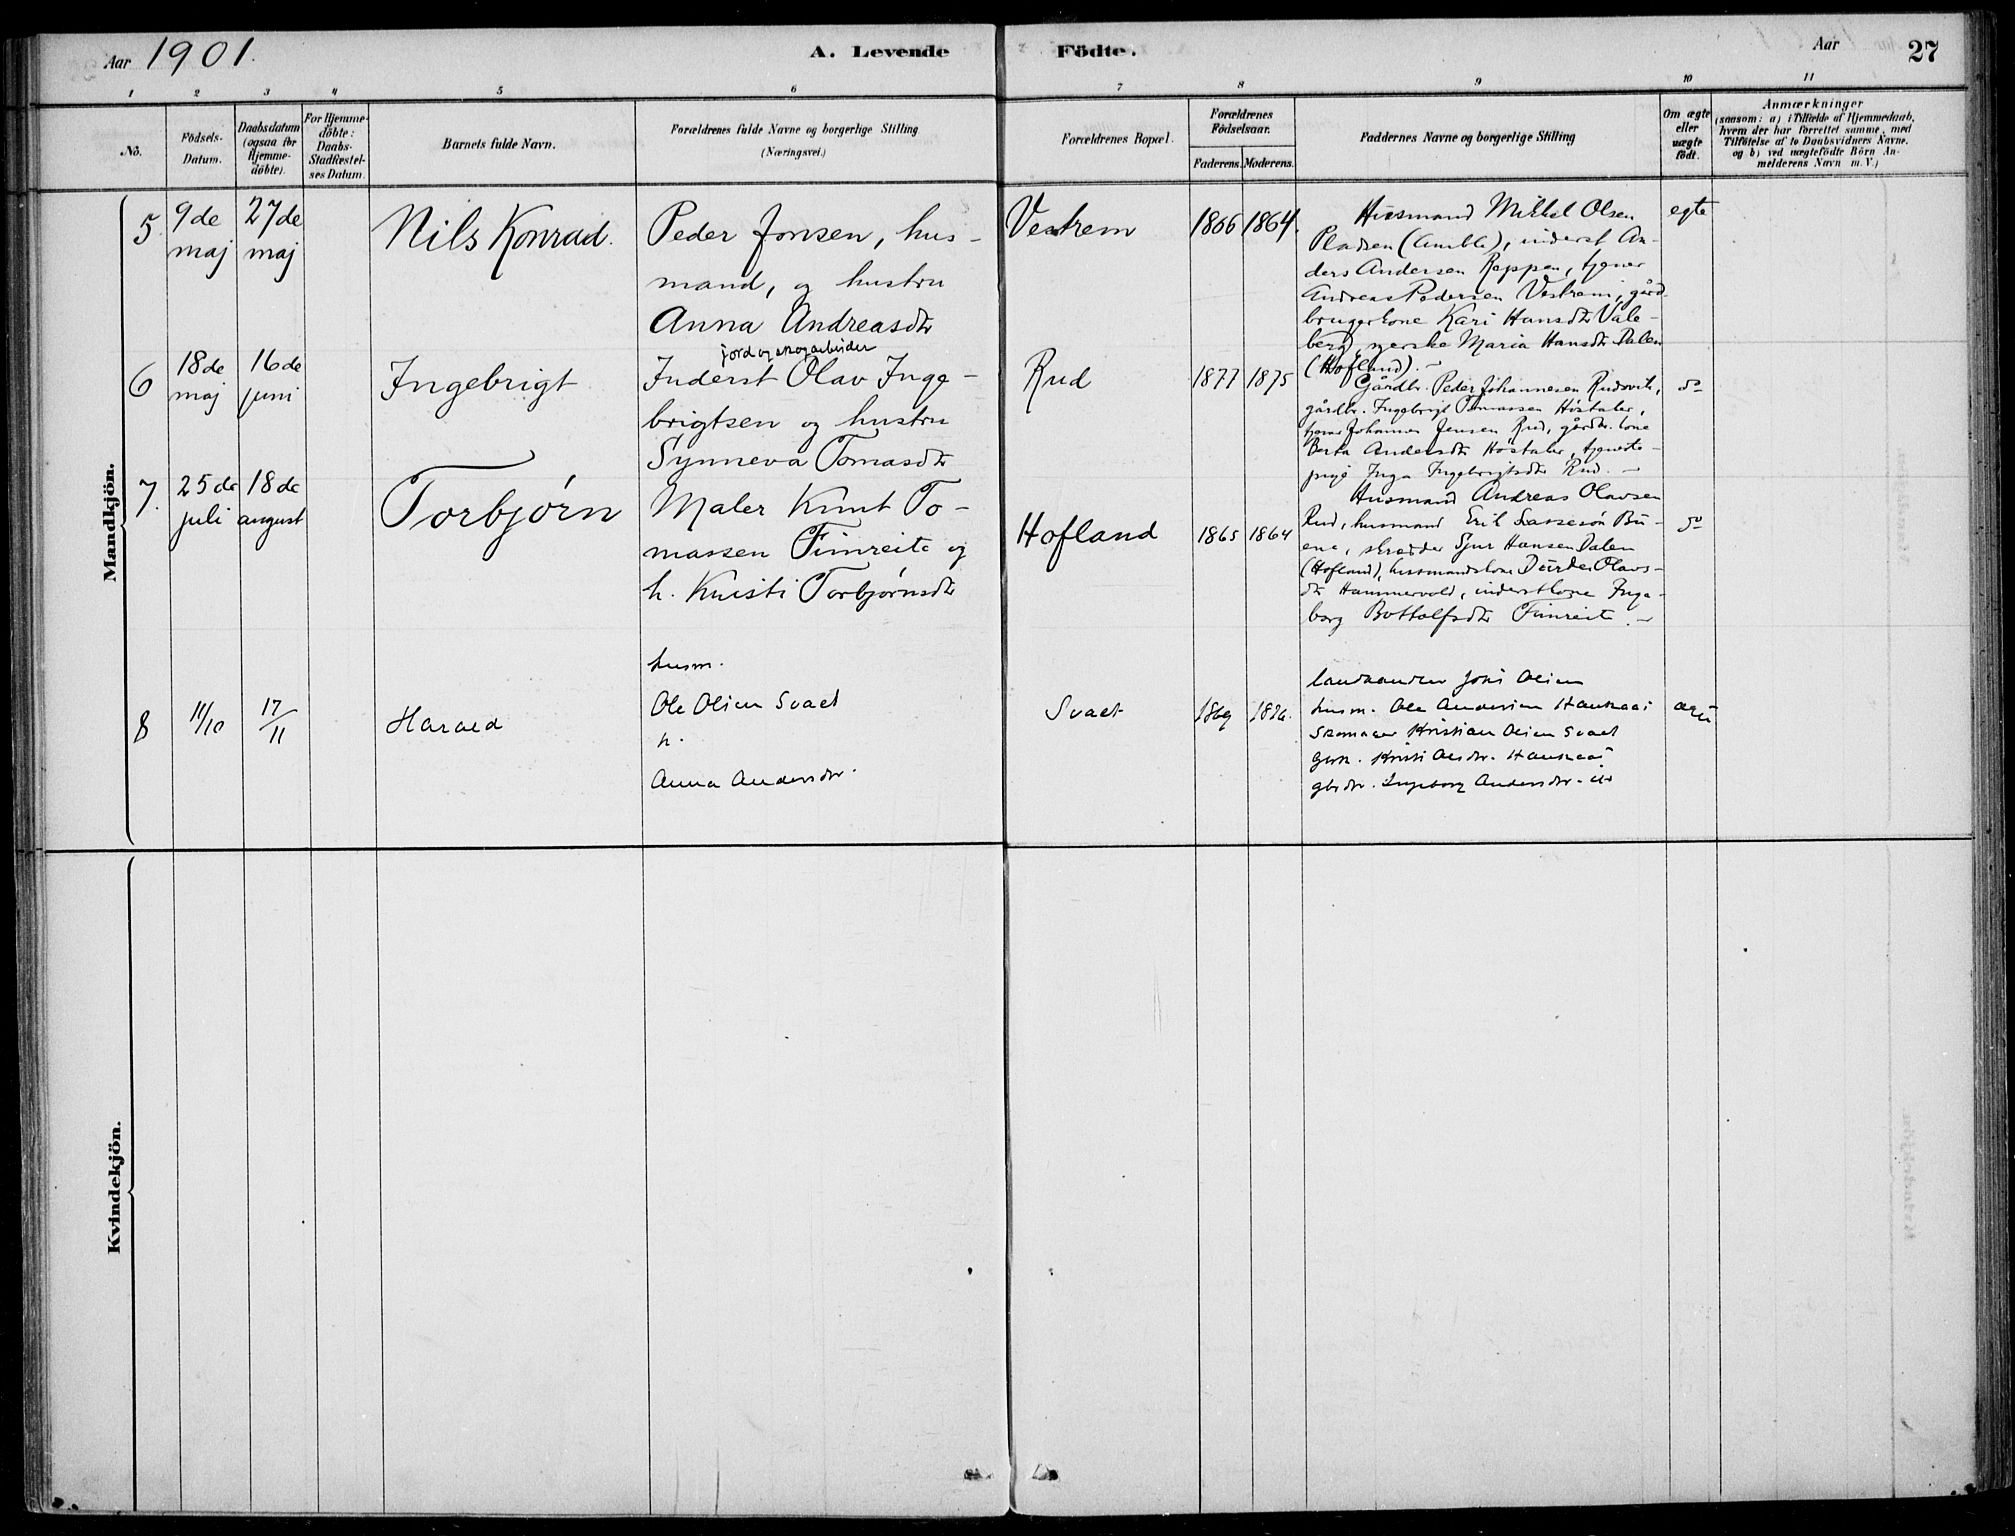 Aar 1901.
A. Levende
Födte.
Aar
27
1 2 3 4 5 6 7 8 9 10 11
No.
Födsels-
Datum.
Daabsdatum
(ogsaa for
Hjemme-
döbte).
For Hjemme-
döbte:
Daabs-
Stadfæstel-
ses Datum.
Barnets fulde Navn.
Forældrenes fulde Navne og borgerlige Stilling
(Næringsvei.)
Forældrenes Bopæl.
Forældrenes
Födselsaar.
Faderens. Moderens.
Faddernes Navne og borgerlige Stilling
Om ægte
eller
uægte
födt.
Anmærkninger
(saasom: a) i Tilfælde af Hjemmedaab,
hvem der har forrettet samme, med
Tilföielse af to Daabsvidners Navne,
og b) ved uægtefödte Börn An-
melderens Navn m. V.)
Mandkjön.
5.
9de
maj
27de
maj
Nils Konrad.
Peder Jonsen, hus-
mand, og hustru
Anna Andreasdtr
Vestrem
1866 1864.
Husmand Mikkel Olsen
Pladsen (Amble), inderst An-
ders Andersen Reppen, tjener
Andreas Pedersen Vestrem, gård-
brugerkone Kari Hansdtr Vale-
berg, Maria Hansdtr Dalen
(Hofland). -
egte
6
18de
maj
16de
juni
Ingebrigt
jord og skogarbeider
Inderst Olav Inge-
brigtsen og hustru
Synneva Tomasdtr
Rud
1877 1875
Gårdbr. Peder Johannesen Rudsvik,
gårdbr. Ingebrigt Tomassen Høstaker,
tjener Johannes Jensen Rud, gårdbr. kone
Berta Andersdtr Høstaker, tjeneste-
pige Inga Ingebrigtsdtr Rud. -
do
7.
25de
juli
18de
august
Torbjørn
Maler Knut To-
massen Fimreite og
h. Kristi Torbjørnsdtr
Hofland
1865 1864
Husmand Andreas Olavsen
Rud, husmand Erik Lassesøn Bu-
ene, skrædder Sjur Hansen Dalen
(Hofland), husmandskone Dårdei Olavs-
dtr Hammervold, inderstkone Inge-
borg Bottolfsdtr Fimreite. -
do
8
11/10
17/11
Harald
husm.
Ole Olsen Svaet
h.
Anna Andersdtr.
Svaet
1869 1876.
Joni Olsen
husm. Ole Andersen Haukaas
Skomager Kristian Olsen Svaet
Kristi Olsdtr. Haukaas
gbrdtr. Ingeborg Andersdtr.
ægte
Kvindekjön.